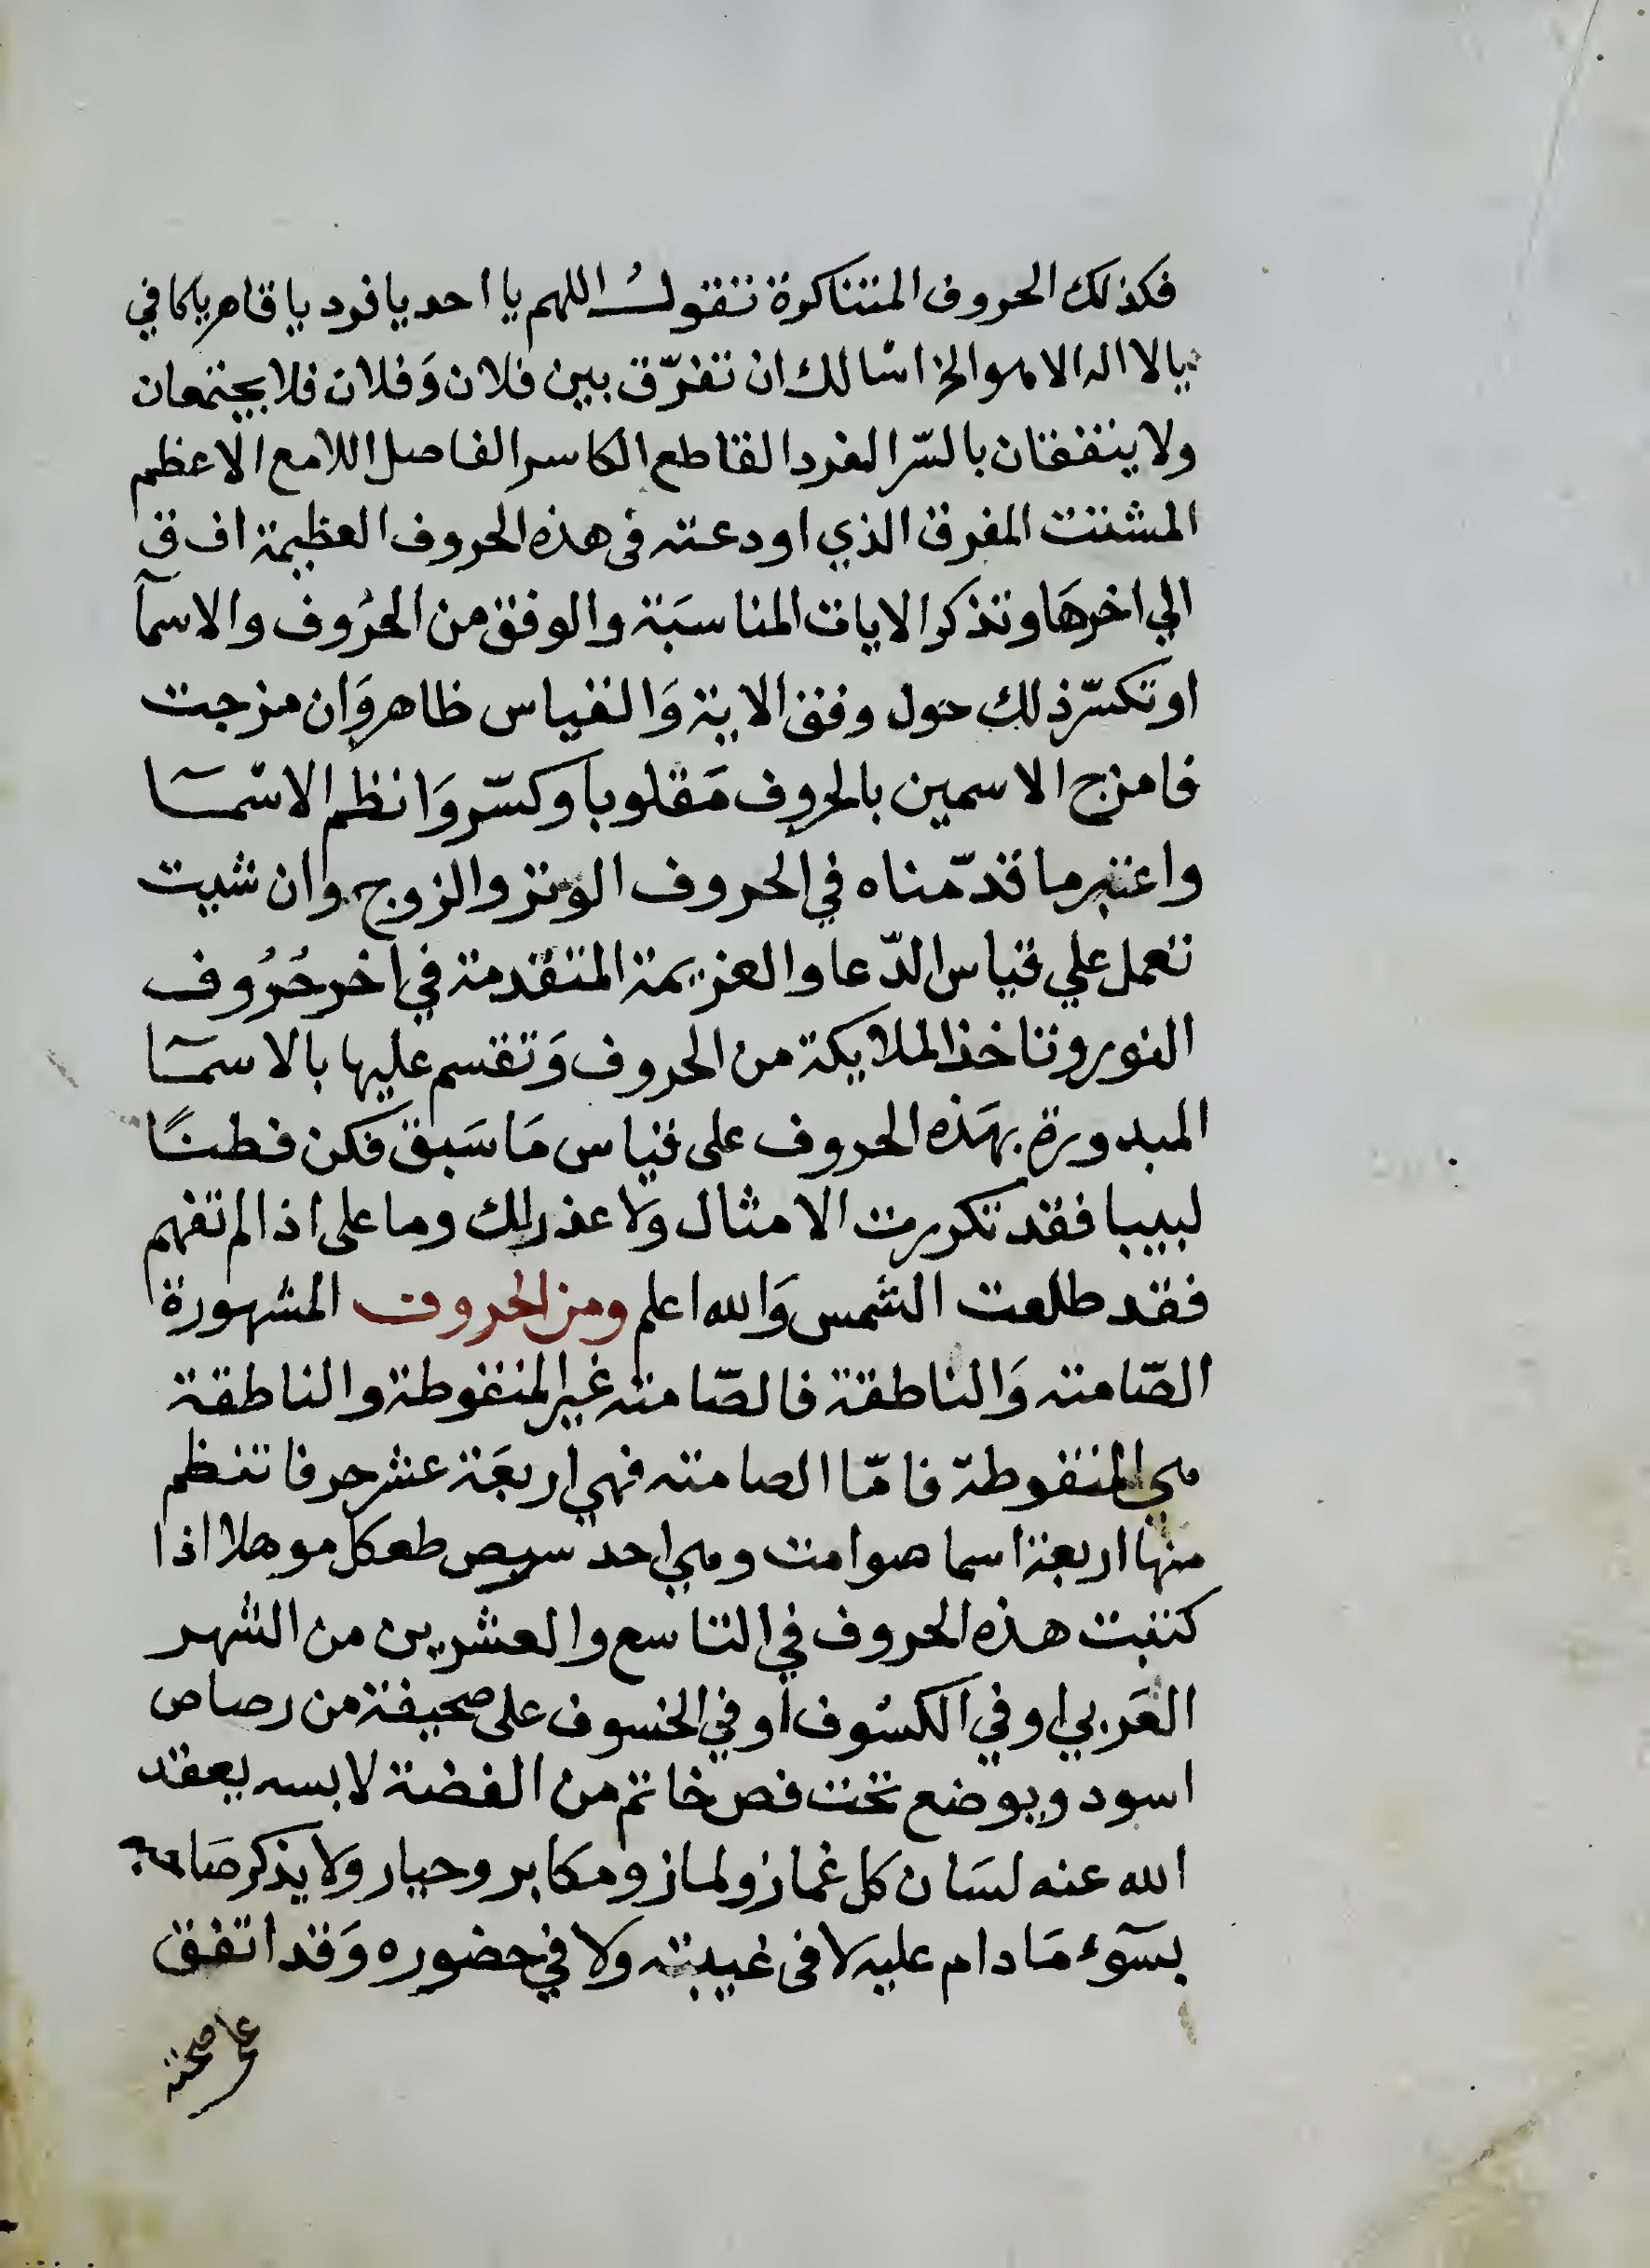 فكذلك الحروف المتناكرة تقول اللهم يا احد يا فرد يا قاهر يا كافي
يا لا اله الا هو الخ اسالك ان تفرّق بين فلان وَفلان فلا يجتمعان
ولا يتفقان بالسّر الفرد القاطع الكاسر الفاصل اللامع الاعظم
المشتت المفرق الذي اودعته في هذه الحروف العظيمة اف ق
الي اخرهَا وتذكر الايات المناسبَة والوفق من الحرُوف والاسمآ
او تكسّر ذلك حول وفق الاية وَالقياس ظاهر وَان مزجت
فامزج الاسمين بالحروف مَقلوبا وكسّر وَانظم الاسمآ
واعتبر ما قدّمناه في الحروف الوتر والزوج وان شيت
تعمل علي قياس الدّعا والعزيمة المتقدمة في اخر حُرُوف
النور وتاخذ الملايكة من الحروف وَتقسم عليها بالاسمآ
المبدورة بهَذه الحروف على قياس مَا سَبق فكن فطنًا
لبيبا فقد تكررت الامثال وَلا عذر لك وما على اذا لم تفهم
فقد طلعت الشمس وَالله اعلم ومن الحروف المشهورة
الصّامته وَالناطقة فالصّامته غير المنقوطة والناطقة
هي المنقوطة فامّا الصامته فهي اربعَة عشر حرفا تنظم
منها اربعة اسما صوامت وهي احد سرص طعكل موهلا اذا
كتبت هذه الحروف في التاسع والعشرين من الشهر
العَربي او في الكسُوف او في الخسوف على صحيفة من رصاص
اسود ويوضع تحت فص خاتم من الفضة لابسه يعقد
الله عنه لسَان كل غماز ولماز ومكابر وحبار وَلا يذكر صَاحبه
بسوٓء مَا دام عليه لا في غيبته ولا في حضوره وَقد اتفق
على صحته